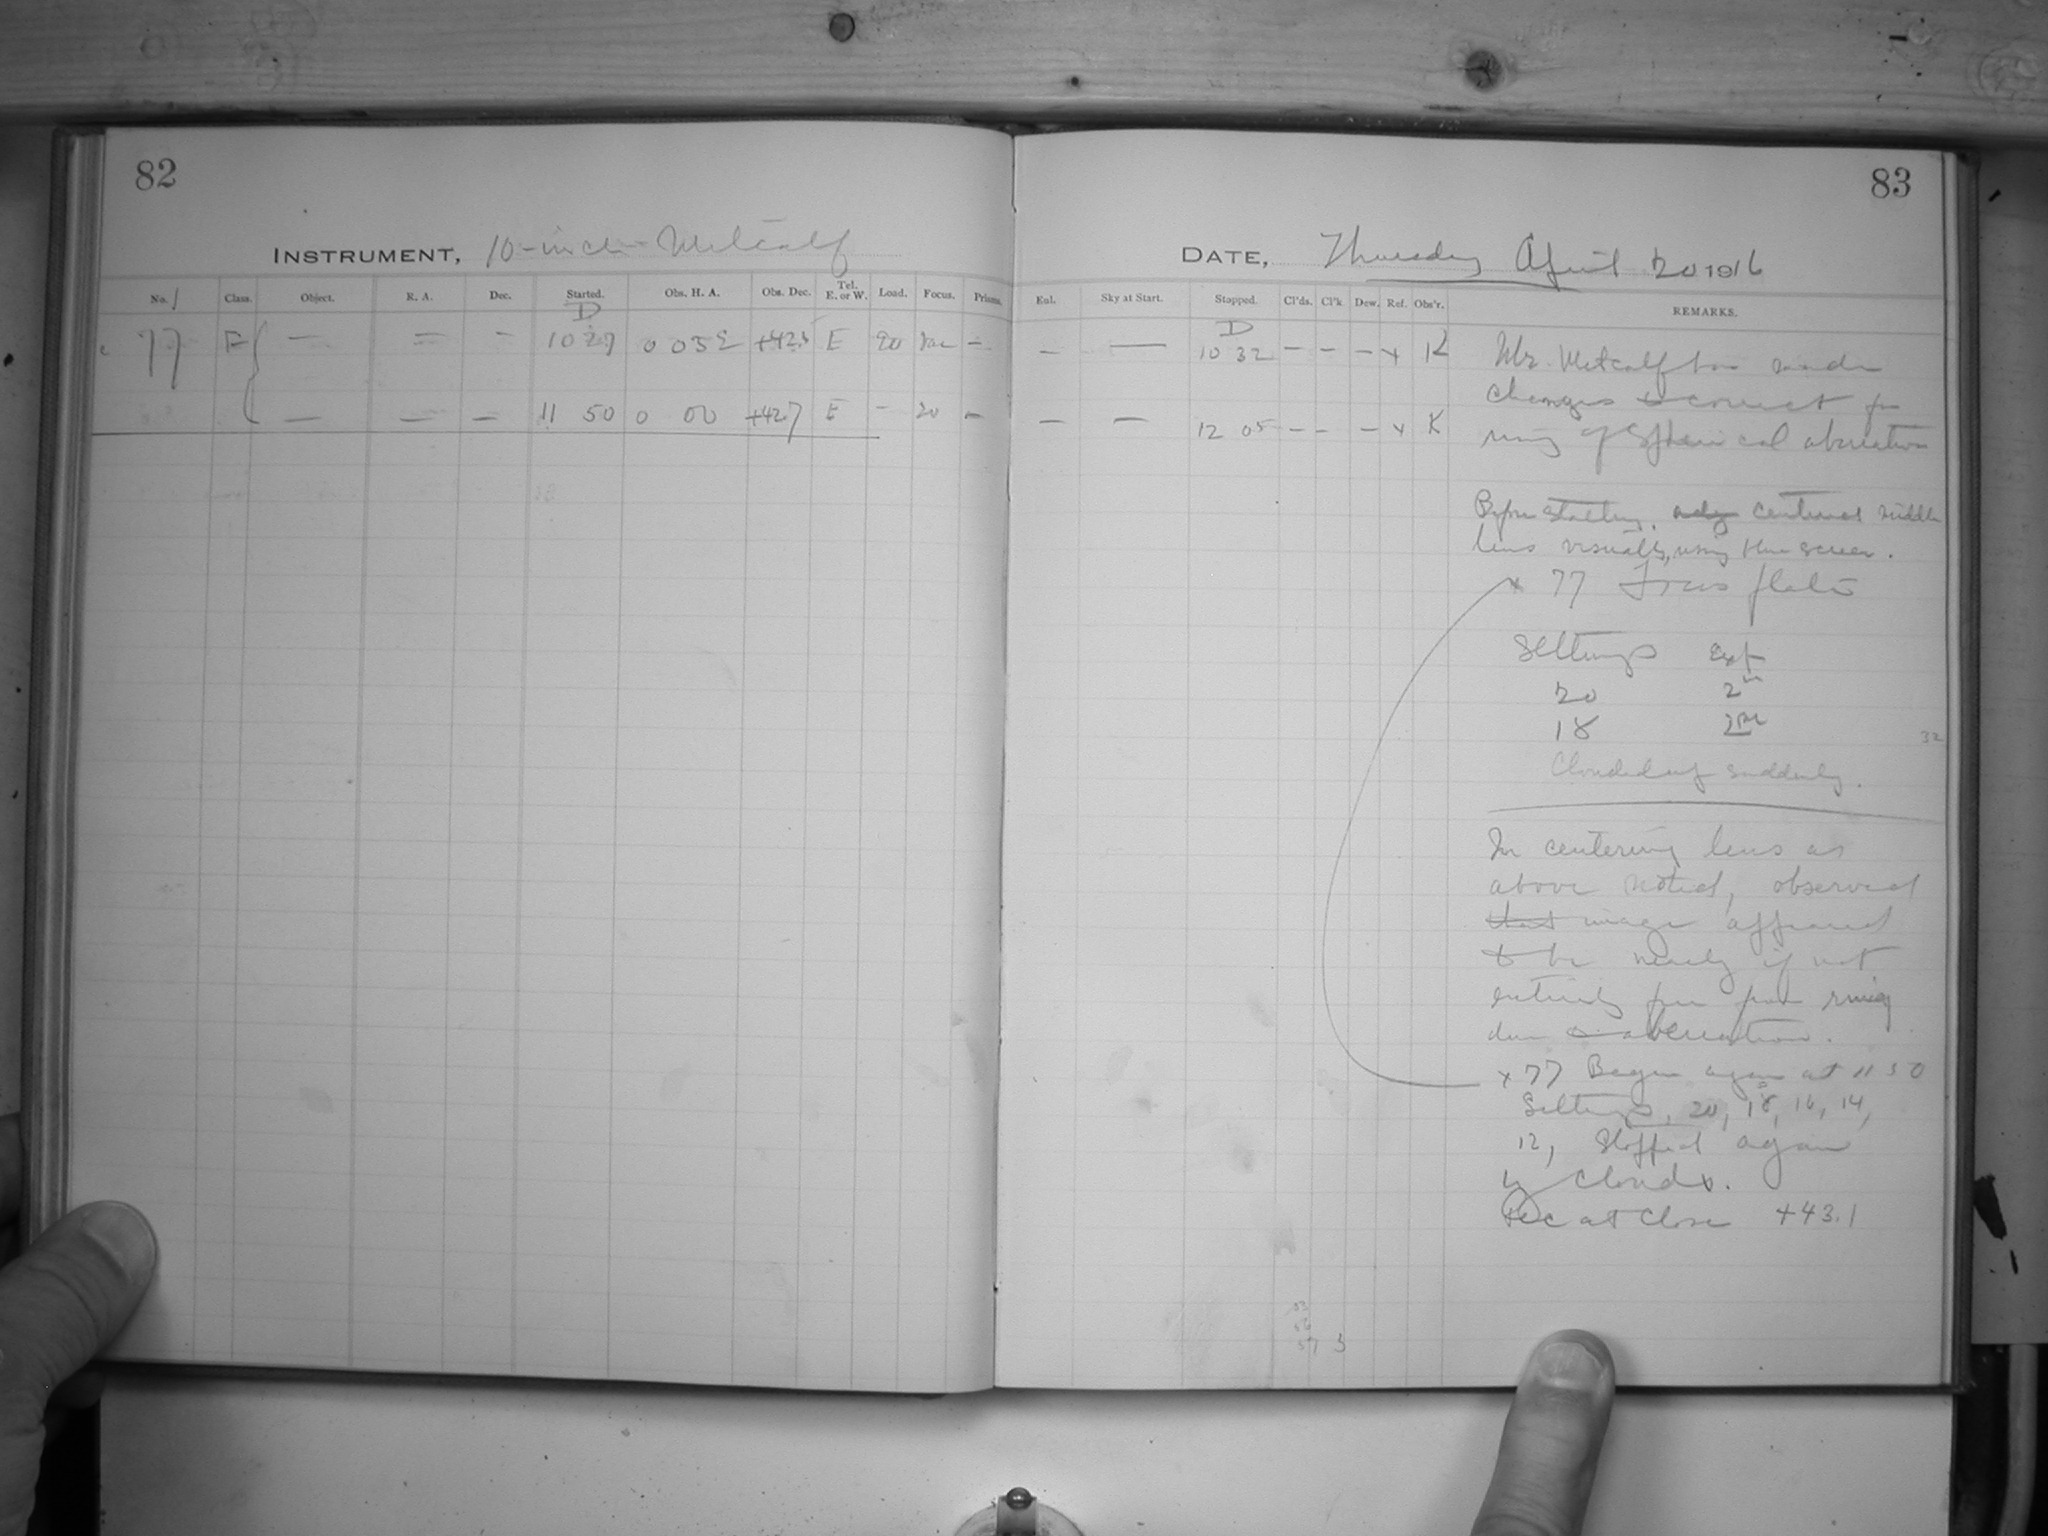 82
INSTRUMENT, 10-inch Metcalf
No. Class. Object. R. A. Dec. Started. Obs. H. A. Obs. Dec. Tel. E. or W. Load. Focus. Prisms.
D
77 F — — — 10 27 0 03 E +42.5 E 20 —
— — — 11 50 0 00 +42.7 E - 20 —
83
DATE, Thursday April 20 1916
Enl. Sky at Start. Stopped. Cl'ds. Cl'k Dew. Ref. Obs'r. REMARKS.
D
— — 10 32 — — — x K
— — 12 05 — — — x K
Mr. Metcalf has made
changes to correct for
ring of spherical aberration
Before starting, centered middle
lens visually, using blue screen.
x 77 Focus plate
Settings Exp
20 2m
18 2m
32
Clouded up suddenly.
In centering lens as
above noted, observed
that image appeared
to be nearly if not
entirely free from ring
due to aberration.
x 77 Began again at 11 50
Settings, 20, 18, 16, 14,
12, Stopped again
by clouds.
Dec at close +43.1